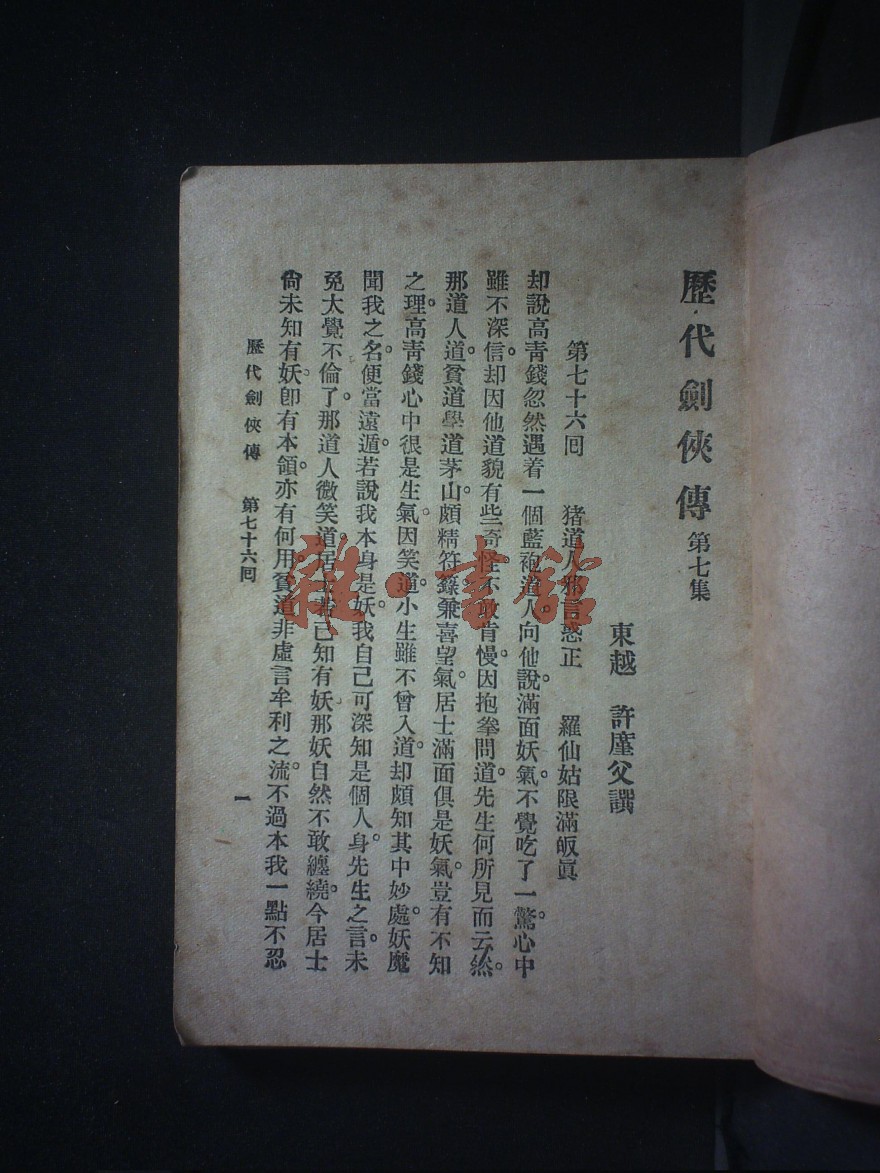 歷代劍俠傳 第七集
東越 許廑父譔
第七十六囘 猪道人邪言惑正 羅仙姑限滿皈眞
却說高靑錢忽然遇着一個藍袍道人。向他說滿面妖氣。不覺吃了一驚。心中
雖不深信。却因他道貌有些奇怪。不敢肯慢。因抱拳問道。先生何所見而云然。
那道人道。貧道學道茅山。頗精符籙。兼喜望氣。居士滿面俱是妖氣。豈有不知
之理。高靑錢心中很是生氣。因笑道。小生雖不曾入道。却頗知其中妙處。妖魔
聞我之名。便當遠遁。若說我本身是妖。我自己可深知是個人身。先生之言。未
免太覺不倫了。那道人微笑道。居士若已知有妖。那妖自然不敢纏繞。今居士
尙未知有妖。卽有本領。亦有何用。貧道非虛言牟利之流。不過本我一點不忍
歷代劍俠傳 第七十六囘
一
雜·書館